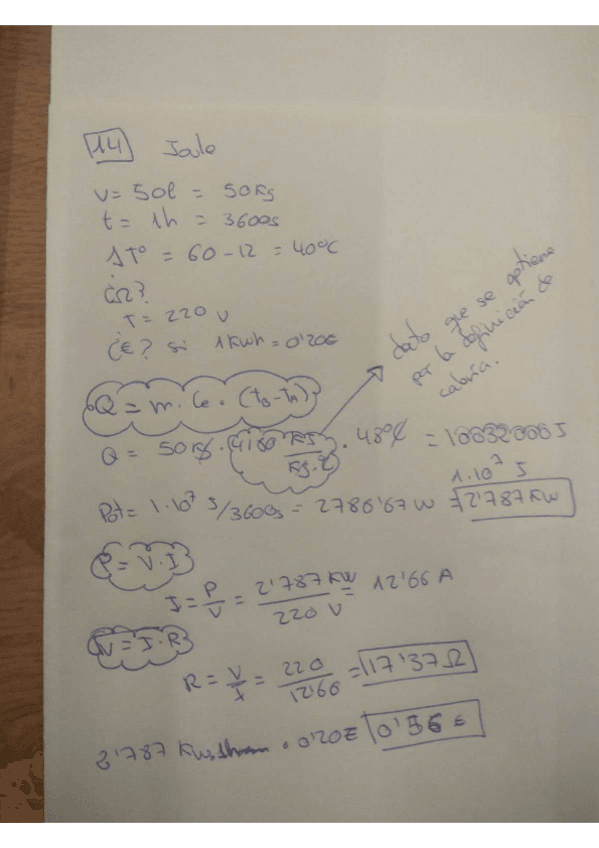 14 Joule
V = 50l = 50Kg
t = 1h = 3600s
ΔTº = 60-12 = 40ºC
¿Ω?
T = 220 V
¿€? si 1Kwh = 0'20€
dato que se obtiene
por la definición de
caloría.
Q = m. Ce. (tB-tA)
Q = 50Kg. (4180 KJ/Kg.ºC). 48ºC = 10032000J
1.10⁷ J
Pot = 1.10⁷ J/3600s = 2786'67 W = 2'787 KW
P = V.I
I = P/V = 2'787 KW / 220 V = 12'66 A
V = I.R
R = V/I = 220/12'66 = 17'37 Ω
2'787 Kw . 0'20€ 0'56 €